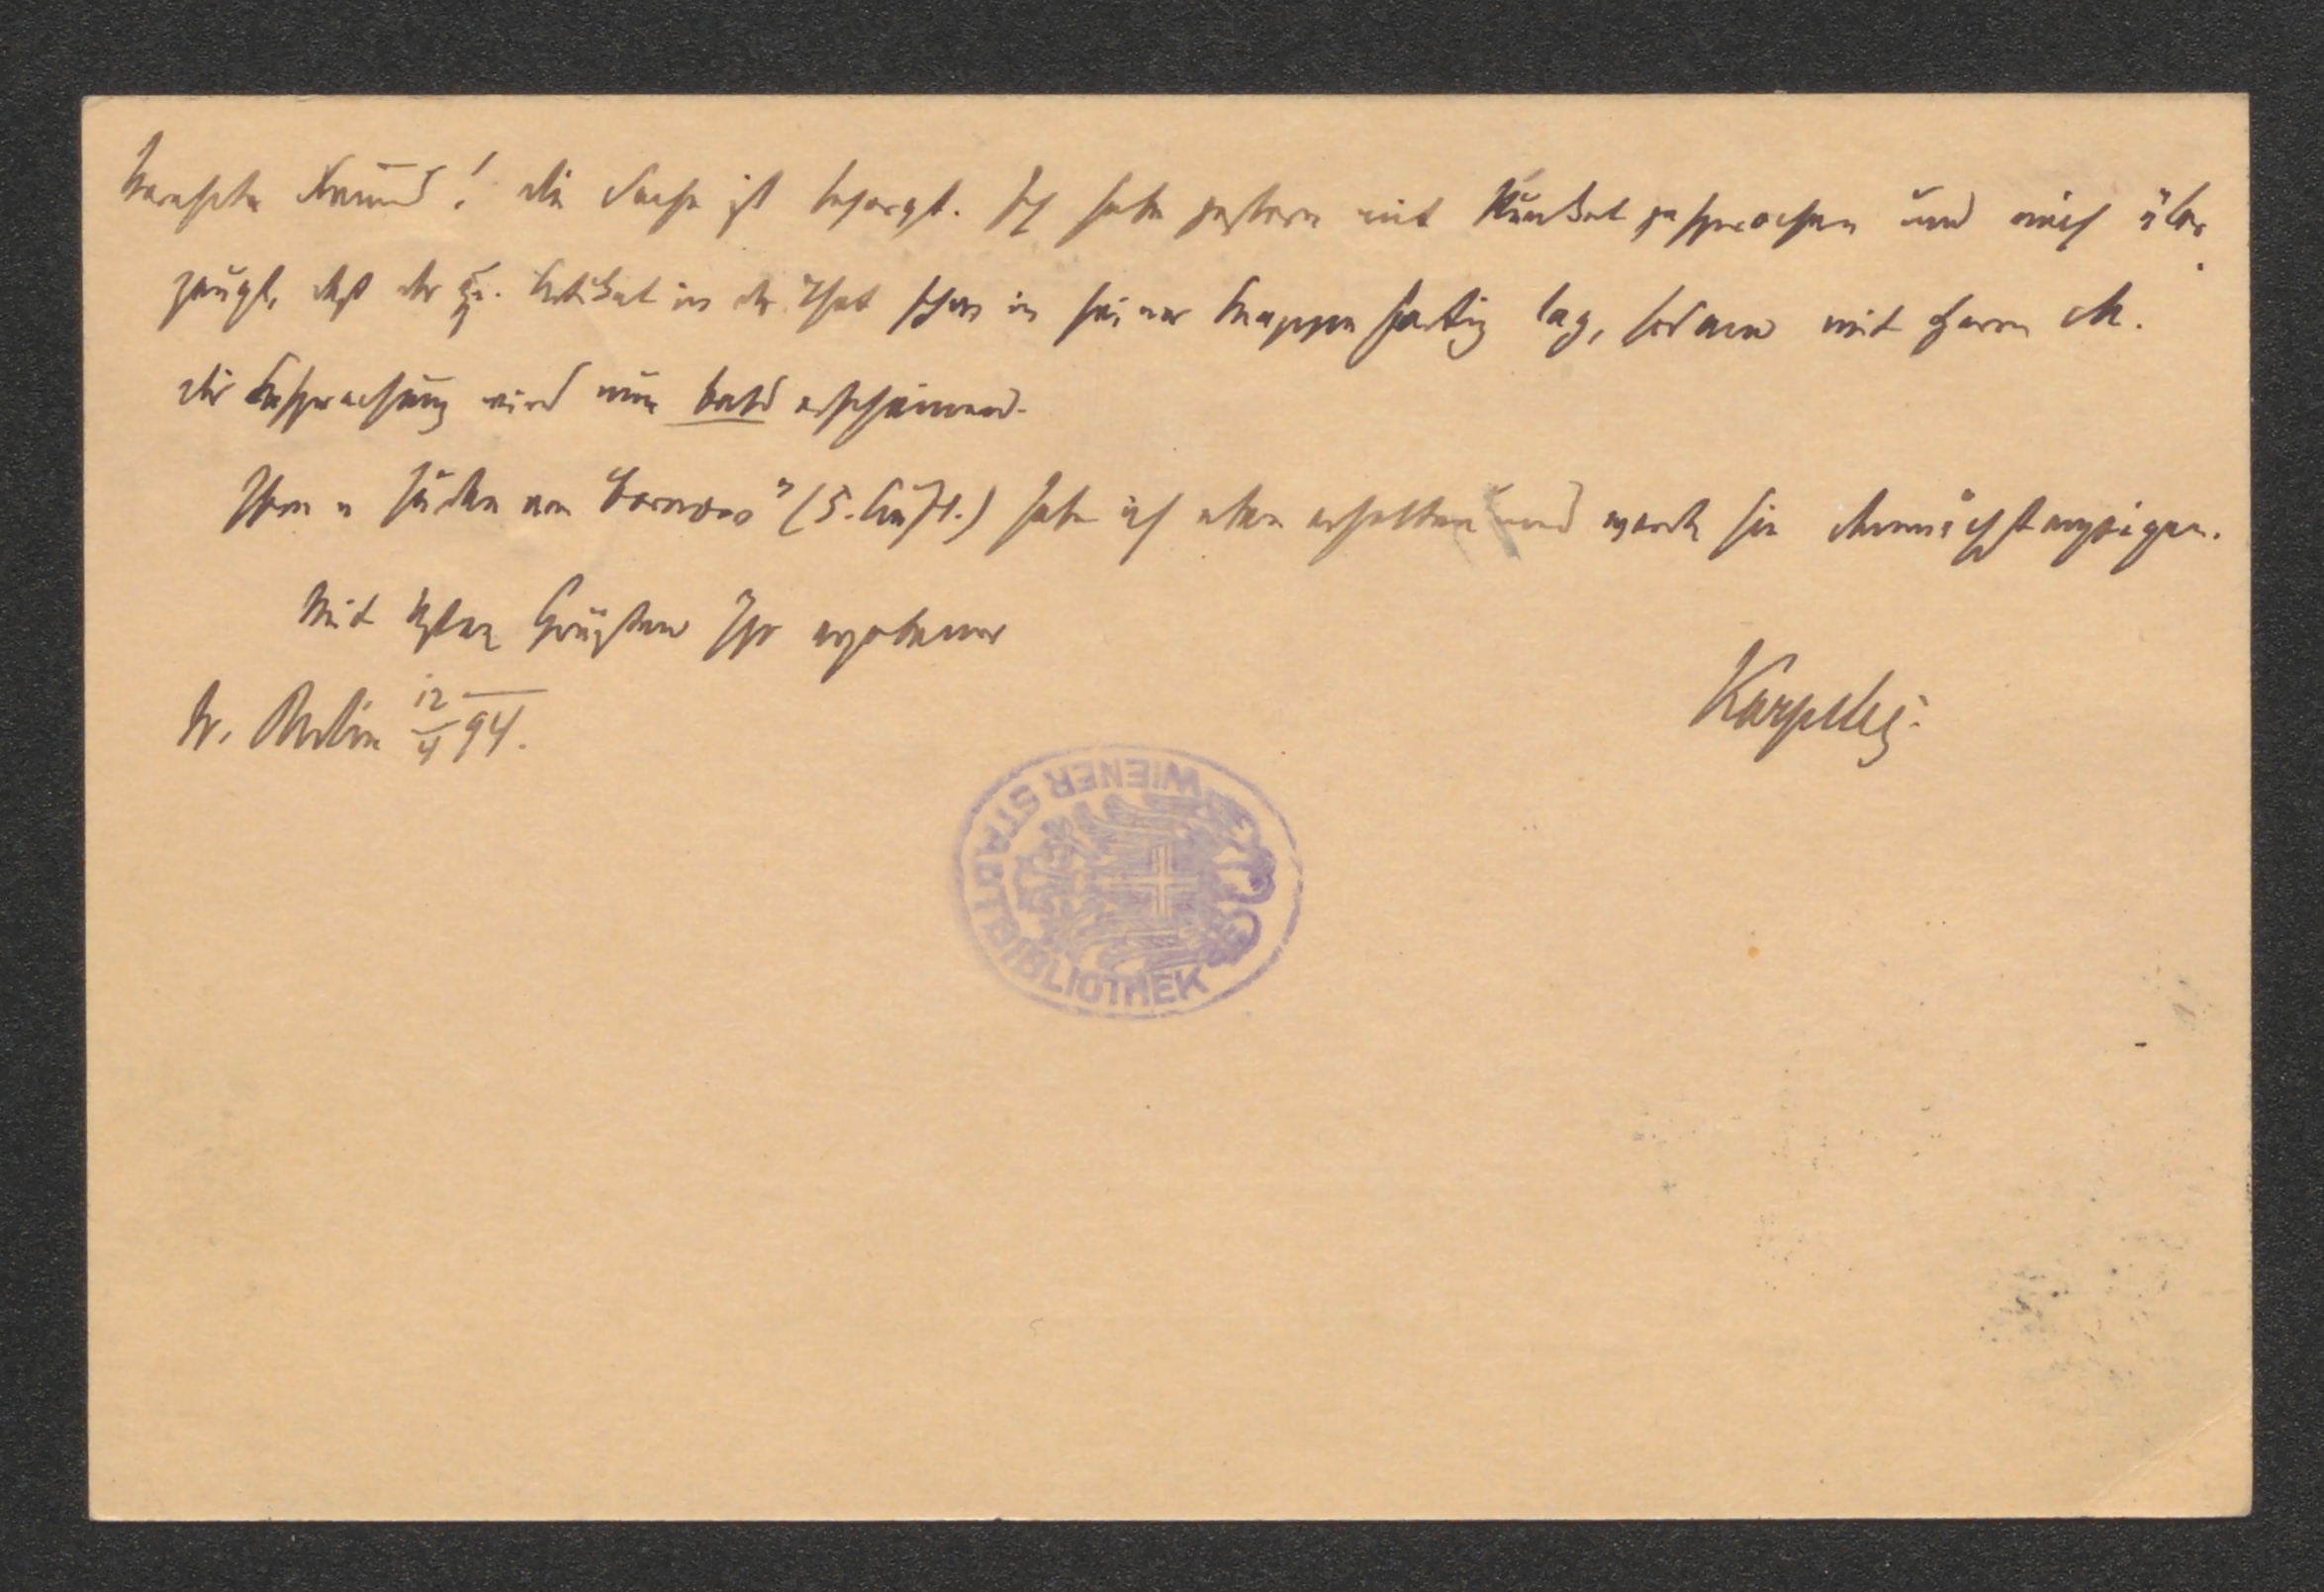 Verehrter Freund! Die Sache ist besorgt. Ich habe gestern mit gesprochen und mich über
zeugt, daß der Artikel in der That schon in seiner Mappe fertig lag, sodann mit Herrn M.
Die Besprechung wird nun bald erscheinen.
Ihre „Juden von Barnow" (5. Aufl.) habe ich eben erhalten und werde sie demnächst anzeigen.
Mit besten Grüßen Ihr ergebener
W. Berlin 12/4 94.
Karpeles.
WIENER STADTBIBLIOTHEK